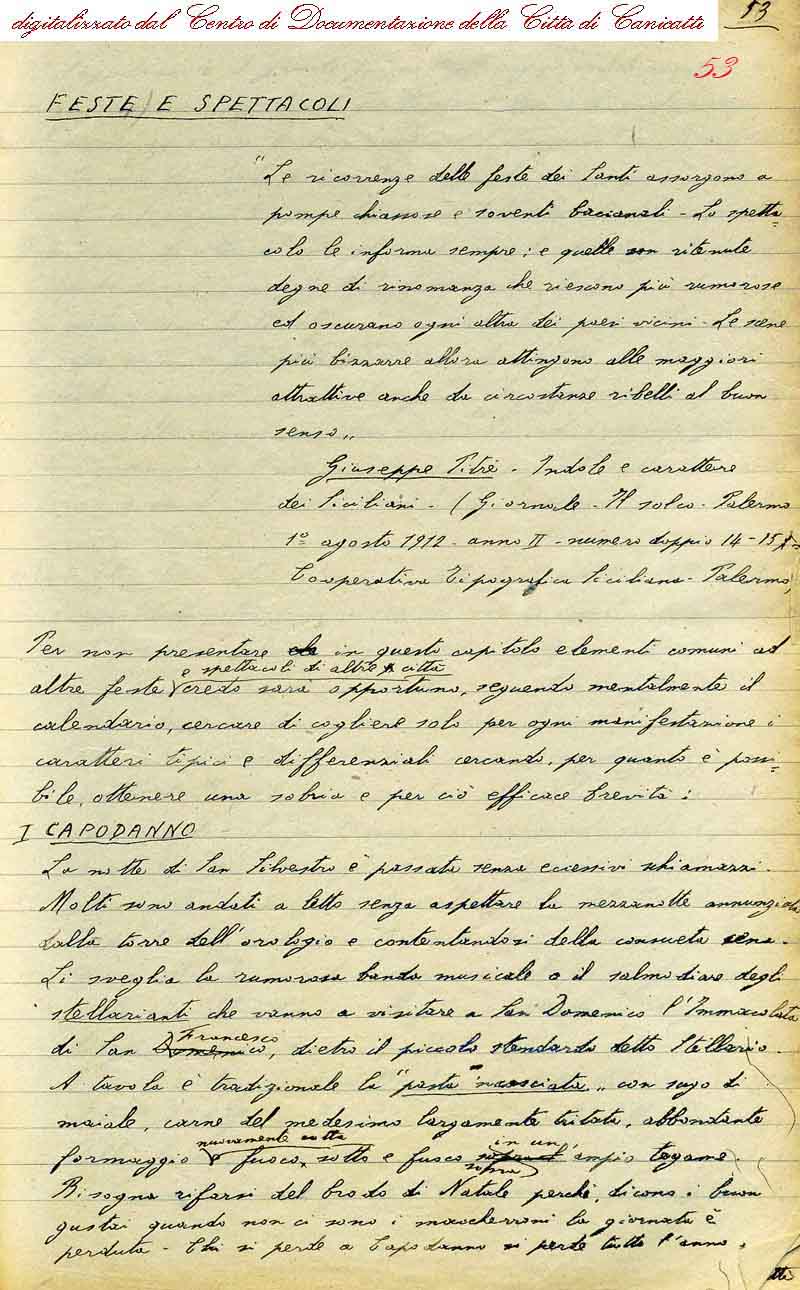 digitalizzato dal Centro di Documentazione della Città di Canicattì
53
53
FESTE E SPETTACOLI
"Le ricorrenze delle feste dei Santi assorgono a
pompe chiassose e soventi baccanali - Lo spetta=
colo le informa sempre: e quelle son ritenute
degne di rinomanza che riescono più rumorose
ed oscurano ogni altra dei paesi vicini - Le scene
più bizzarre allora attingono alle maggiori
attrattive anche da circostanze ribelli al buon
senso„
Giuseppe Pitrè - Indole e carattere
dei Siciliani - (Giornale - Il solco - Palermo
1° agosto 1912 - anno II - numero doppio 14-15
Cooperativa Tipografica Siciliana - Palermo)
Per non presentare in questo capitolo elementi comuni ad
e spettacoli di altre città
altre feste credo sarà opportuno, seguendo mentalmente il
calendario, cercare di cogliere solo per ogni manifestazione i
caratteri tipici e differenziali cercando, per quanto è possi=
bile, ottenere una sobria e per ciò efficace brevità:
I CAPODANNO
La notte di San Silvestro è passata senza eccessivi schiamazzi.
Molti sono andati a letto senza aspettare la mezzanotte annunziata
dalla torre dell'orologio e contentandosi della consueta cena.
Li sveglia la rumorosa banda musicale o il salmodiare degli
stellarianti che vanno a visitare a San Domenico l'Immacolata
Francesco
di San Domenico, dietro il piccolo stendardo detto Stellario.
A tavola è tradizionale la "pasta 'ncasciata„ con sugo di
maiale, carne del medesimo largamente tritata, abbondante
nuovamente cotta in un
formaggio e fuoco sotto e fuoco sopra ampio tegame.
sopra
Bisogna rifarsi del brodo di Natale perchè, dicono i buon
gustai quando non ci sono i maccherroni la giornata è
perduta - Chi si perde a Capodanno si perde tutto l'anno.